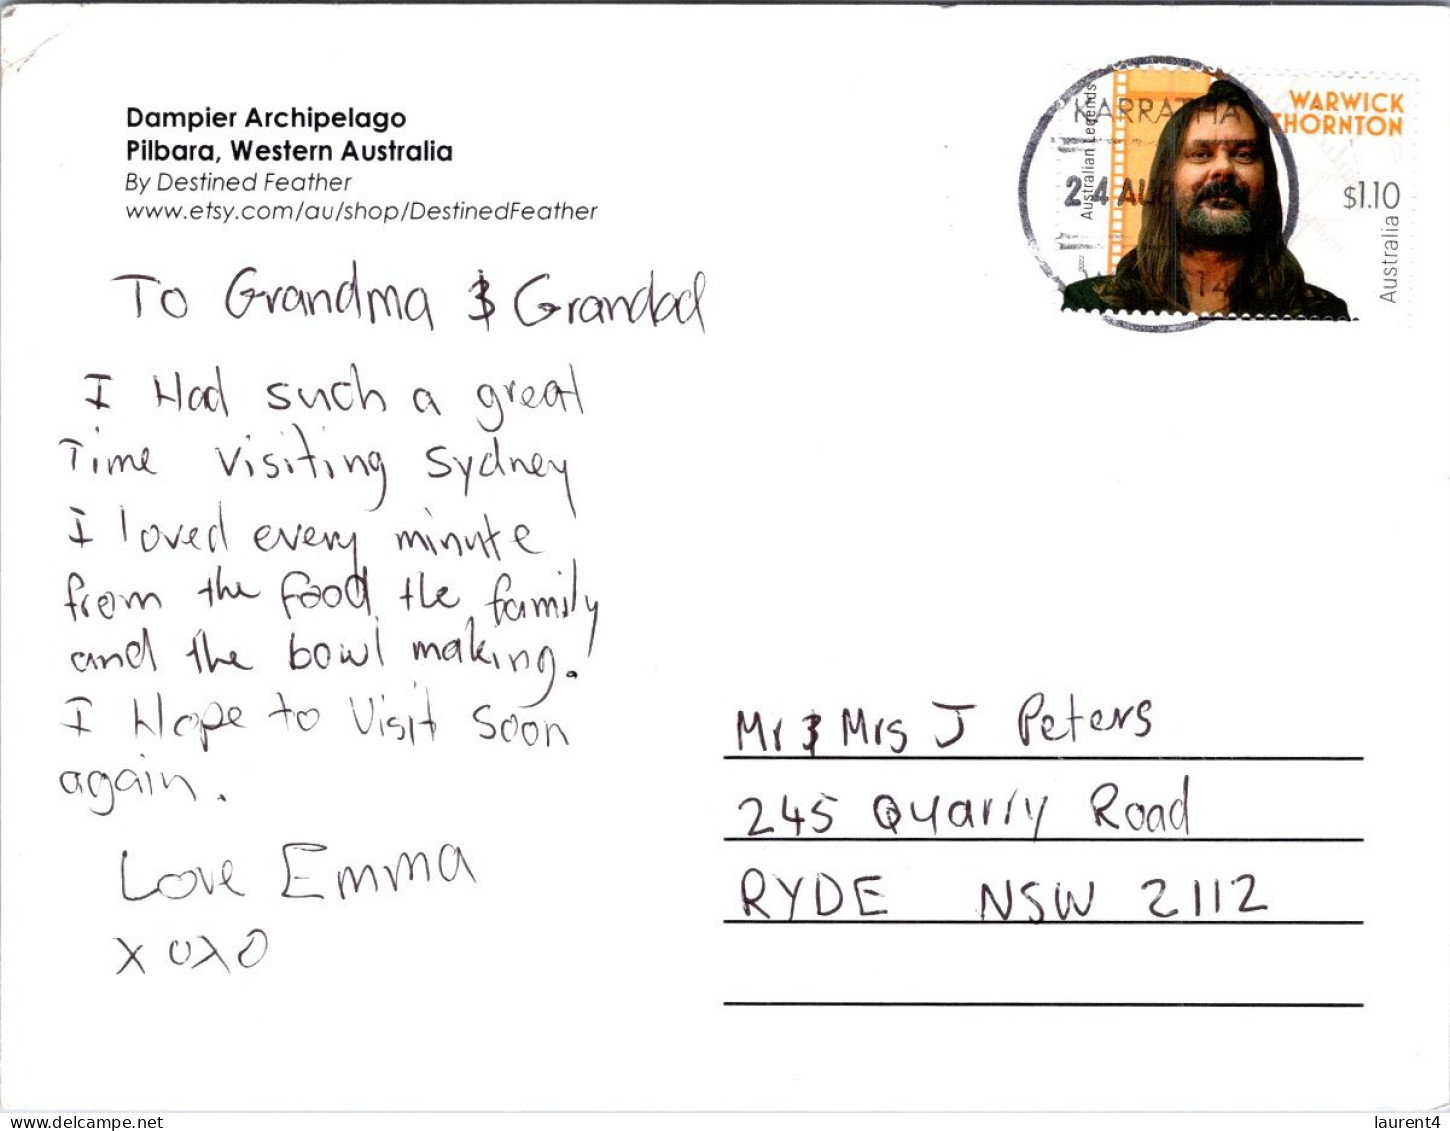 Dampier Archipelago
Pilbara, Western Australia
By Destined Feather
www.etsy.com/au/shop/DestinedFeather
KARRATHA
24 AUG
14
Australian Legends
2022
WARWICK
THORNTON
$1.10
Australia
To Grandma & Grandad
I Had such a great
Time visiting Sydney
I loved every minute
from the food, the family
and the bowl making!
I Hope to visit soon
again.
Love Emma
xoxo
Mr & Mrs J Peters
245 Quarry Road
RYDE NSW 2112
laurent4